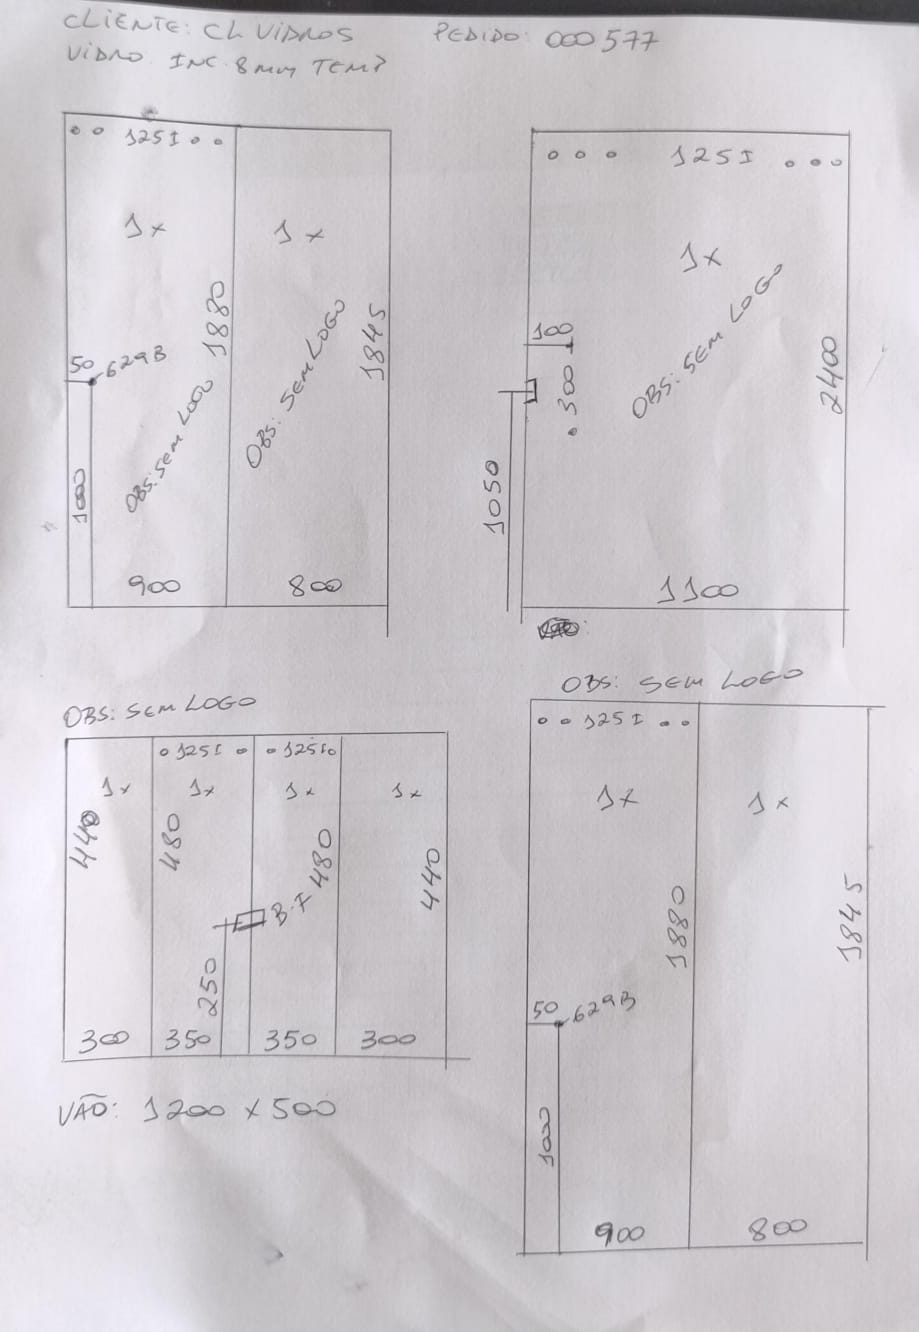 CLIENTE: CL VIDROS PEDIDO: 000577
VIDRO INC. 8mm TEMP
125I
1x
1x
1880
1845
50
629B
OBS: SEM LOGO
OBS: SEM LOGO
1000
900
800
125I
1x
100
300
OBS: SEM LOGO
2400
1050
1100
OBS: SEM LOGO
125I
125I
1x
1x
1x
1x
440
480
480
440
B.F
250
300
350
350
300
VÃO: 1200 x 500
OBS: SEM LOGO
125I
1x
1x
1880
1845
50
629B
1000
900
800